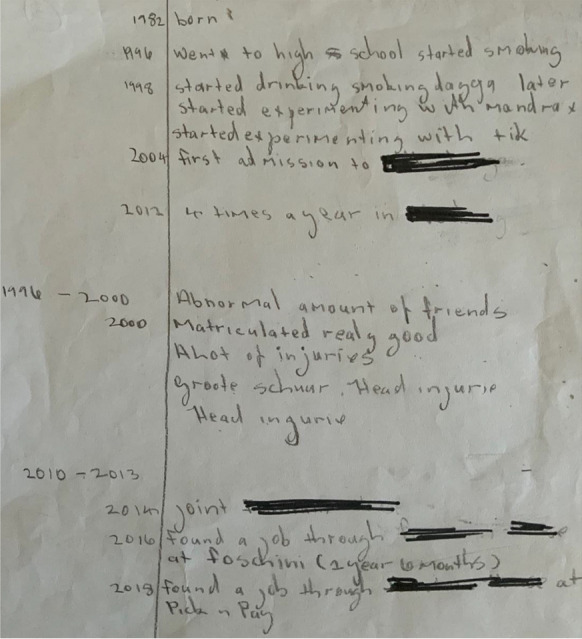 1982 born
1996 went to high school started smoking
1998 started drinking smoking dagga later
started experimenting with mandrax
started experimenting with tik
2004 first admission to
2012 4 times a year in
1996 - 2000 Abnormal amount of friends
2000 Matriculated realy good
Alot of injuries
Groote schuur. Head ingurie
Head ingurie
2010 - 2013
2014 joint
2016 found a job through
at foschini (2 year 6 months)
2018 found a job through at
Pick n Pay